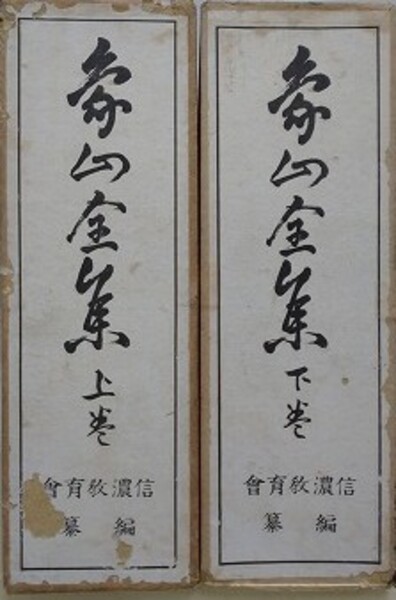 象山全集 上巻
信濃敎育會
編纂
象山全集 下巻
信濃敎育會
編纂